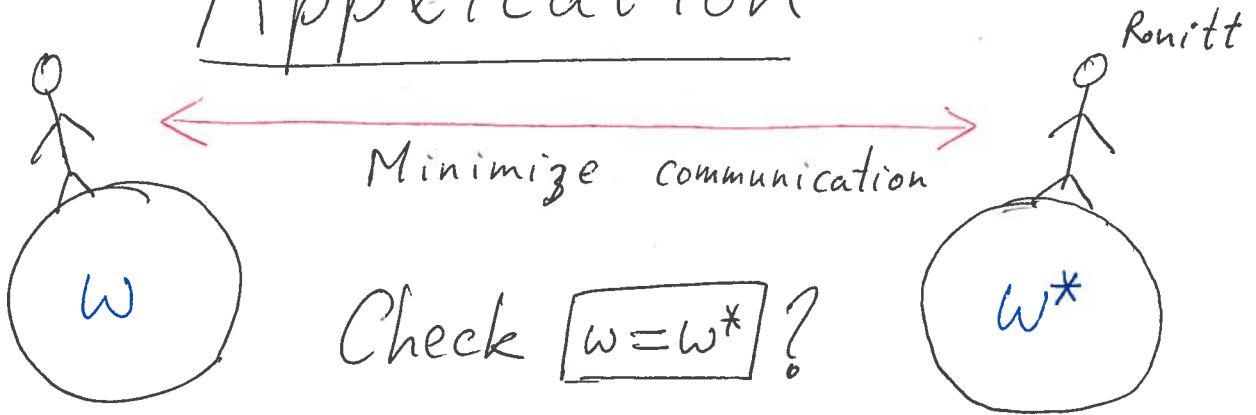 Application
Ronitt
Minimize communication
w
Check w=w* ?
w*